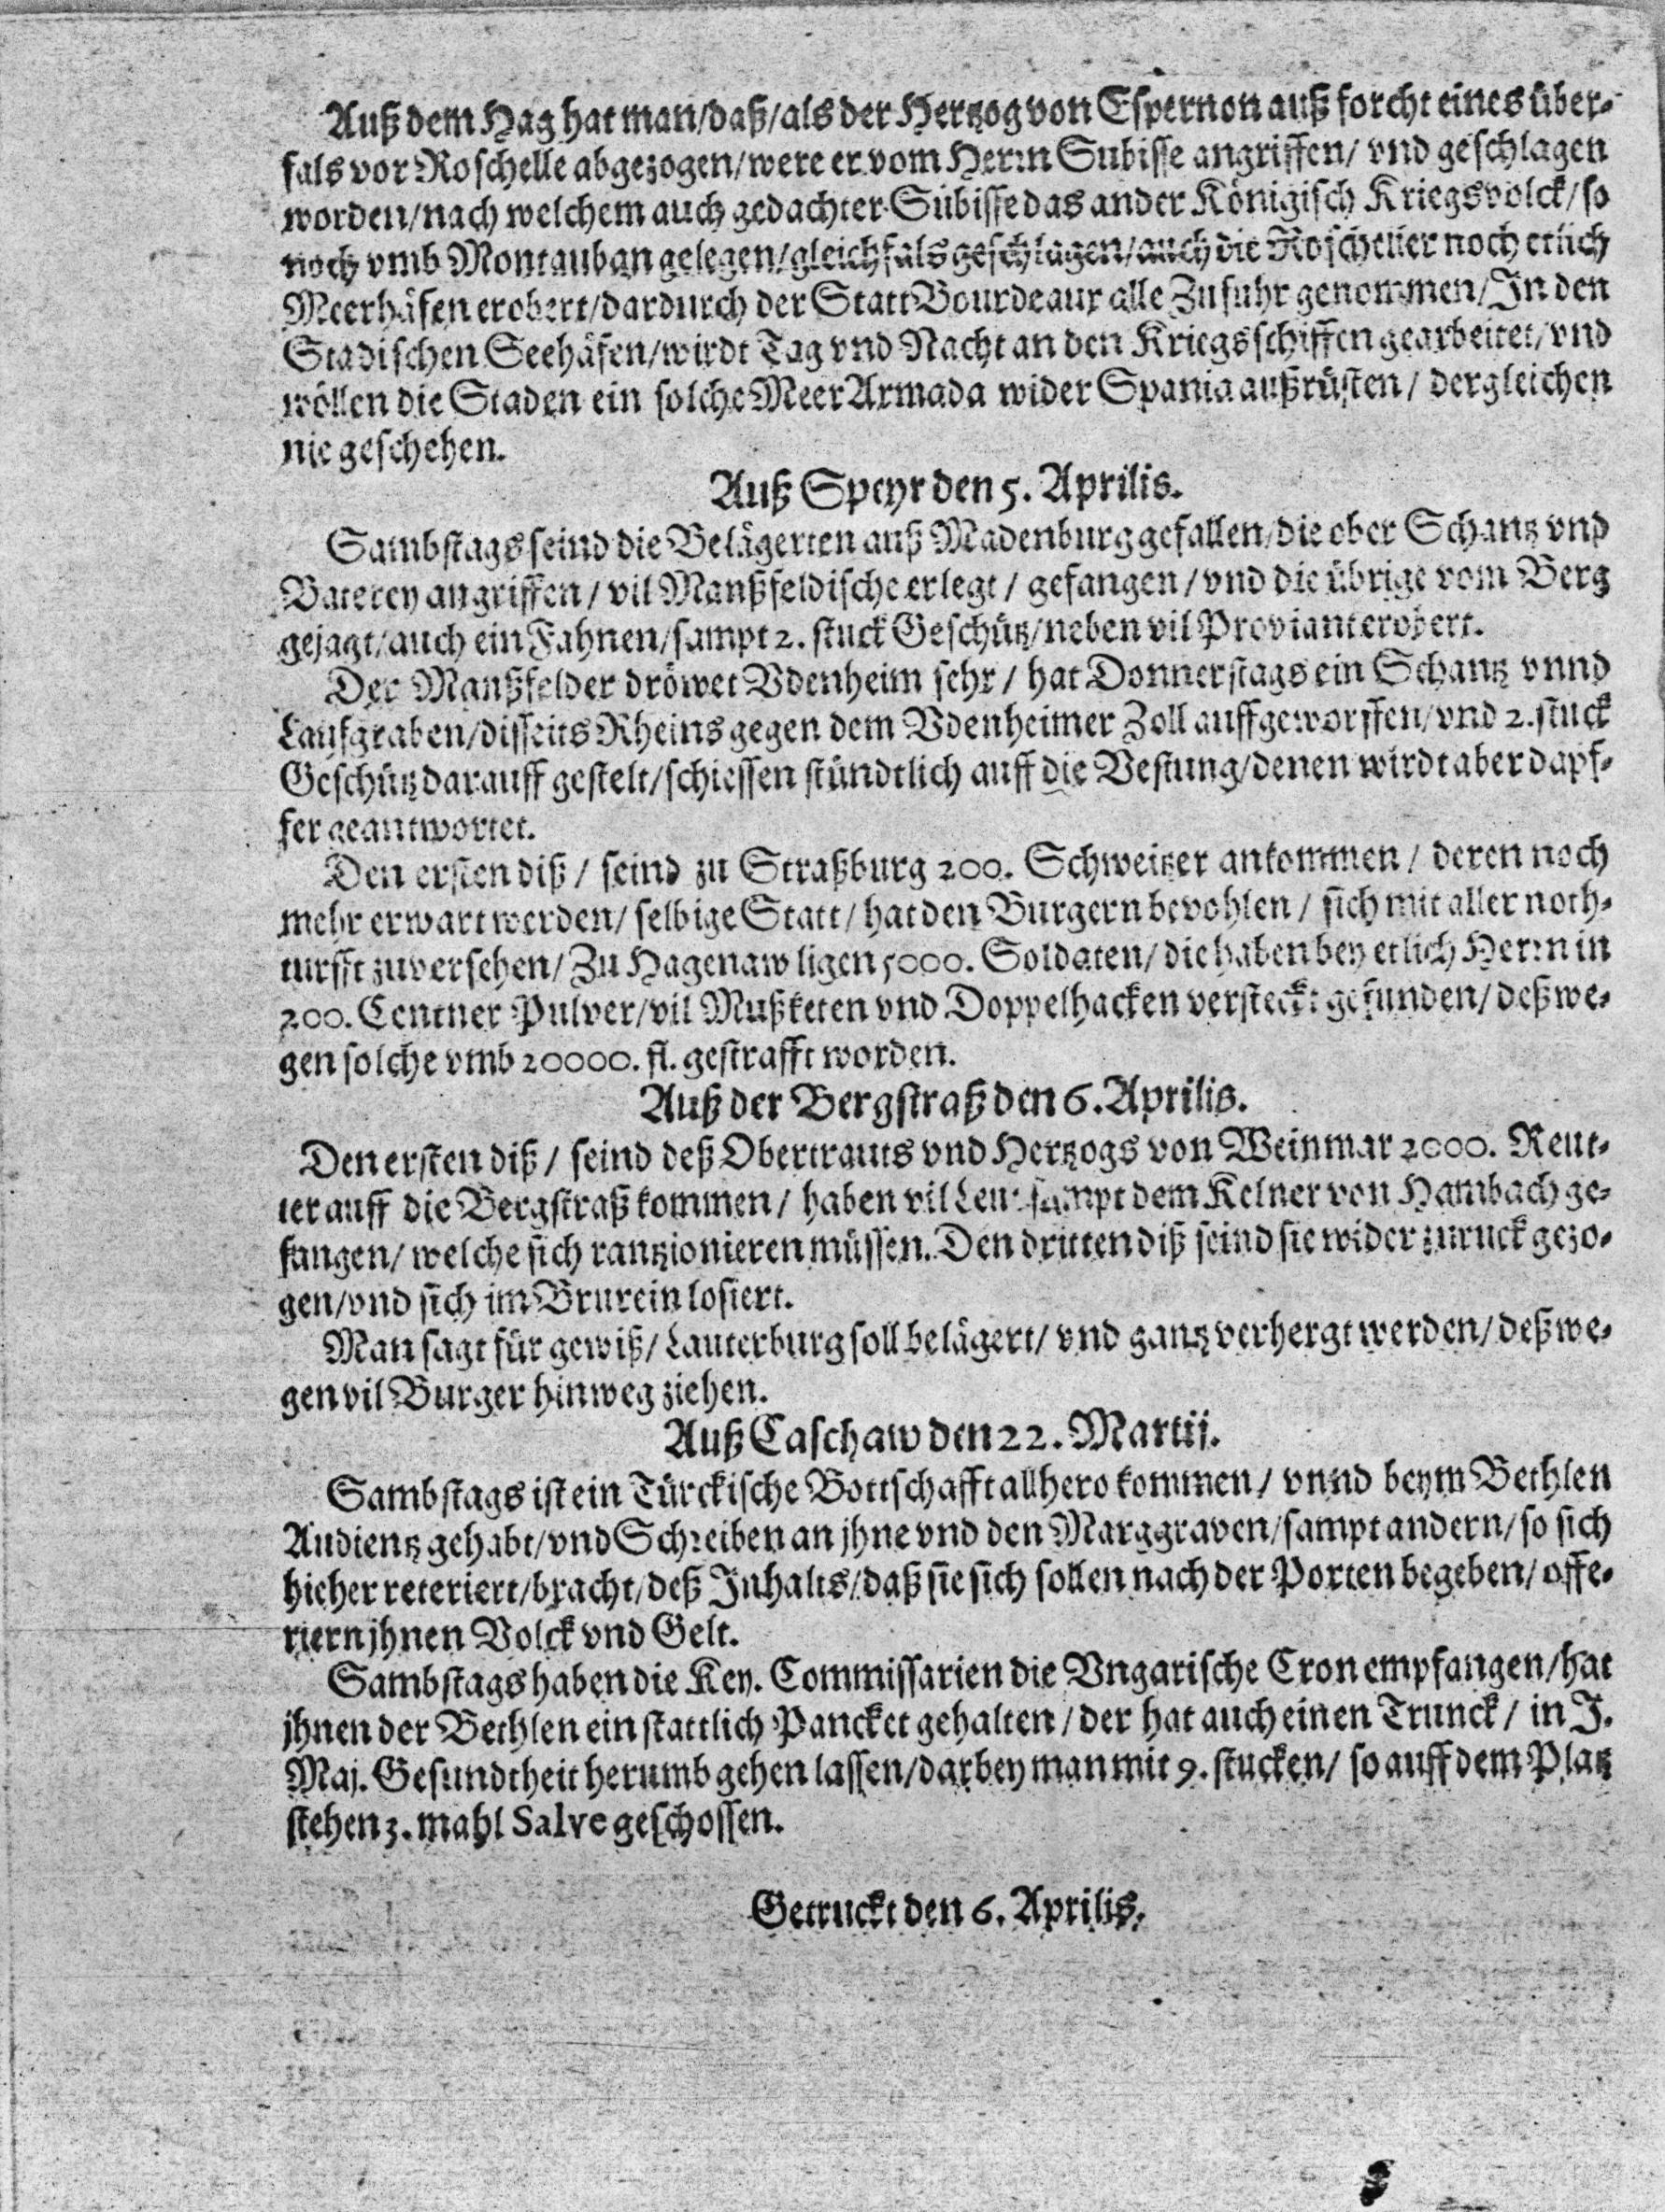 Auß dem Hag hat man/daß/als der Hertzog von Espernon auß forcht eines über-
fals vor Roschelle abgezogen/were er vom Herrn Subisse angriffen/ vnd geschlagen
worden/nach welchem auch gedachter Subisse das ander Königisch Kriegsvolck/so
noch vmb Montauban gelegen/gleichfals geschlagen/auch die Roscheller noch etlich
Meerhäfen erobert/dardurch der Statt Bourdeaux alle Zufuhr genommen/In den
Stadischen Seehäfen/wirdt Tag vnd Nacht an den Kriegsschiffen gearbeitet/vnd
wöllen die Staden ein solche Meer Armada wider Spania außrüsten/ dergleichen
nie geschehen.
Auß Speyr den 5. Aprilis.
Sambstags seind die Belägerten auß Madenburg gefallen/die ober Schantz vnd
Baterey angriffen/ vil Manßfeldische erlegt/ gefangen/vnd die übrige vom Berg
gejagt/auch ein Fahnen/sampt 2. stuck Geschütz/neben vil Proviant erobert.
Der Manßfelder dröwet Vdenheim sehr/ hat Donnerstags ein Schantz vnnd
Laufgraben/disseits Rheins gegen dem Vdenheimer Zoll auffgeworffen/vnd 2. stuck
Geschütz darauff gestelt/schiessen stündtlich auff die Vestung/denen wirdt aber dapf-
fer geantwortet.
Den ersten diß/ seind zu Straßburg 200. Schweitzer ankommen/ deren noch
mehr erwart werden/ selbige Statt/ hat den Burgern bevohlen/ sich mit aller noth-
turfft zuversehen/Zu Hagenaw ligen 5000. Soldaten/die haben bey etlich Herrn in
200. Centner Pulver/vil Mußketen vnd Doppelhacken versteckt gefunden/deßwe-
gen solche vmb 20000. fl. gestrafft worden.
Auß der Bergstraß den 6. Aprilis.
Den ersten diß/ seind deß Obertrauts vnd Hertzogs von Weinmar 2000. Reut-
ter auff die Bergstraß kommen/ haben vil Leut sampt dem Kelner von Hambach ge-
fangen/ welche sich rantzionieren müssen. Den dritten diß seind sie wider zuruck gezo-
gen/vnd sich im Brurein losiert.
Man sagt für gewiß/ Lauterburg soll belägert/ vnd gantz verhergt werden/deßwe-
gen vil Burger hinweg ziehen.
Auß Caschaw den 22. Martii.
Sambstags ist ein Türckische Bottschafft allhero kommen/ vnnd beym Bethlen
Audientz gehabt/vnd Schreiben an jhne vnd den Marggraven/sampt andern/so sich
hieher reteriert/bracht/deß Inhalts/daß sie sich sollen nach der Porten begeben/offe-
riern jhnen Volck vnd Gelt.
Sambstags haben die Key. Commissarien die Vngarische Cron empfangen/hat
jhnen der Bethlen ein stattlich Pancket gehalten/der hat auch einen Trunck/ in J.
Maj. Gesundtheit herumb gehen lassen/darbey man mit 9. stucken/ so auff dem Platz
stehen 3. mahl Salve geschossen.
Getruckt den 6. Aprilis.